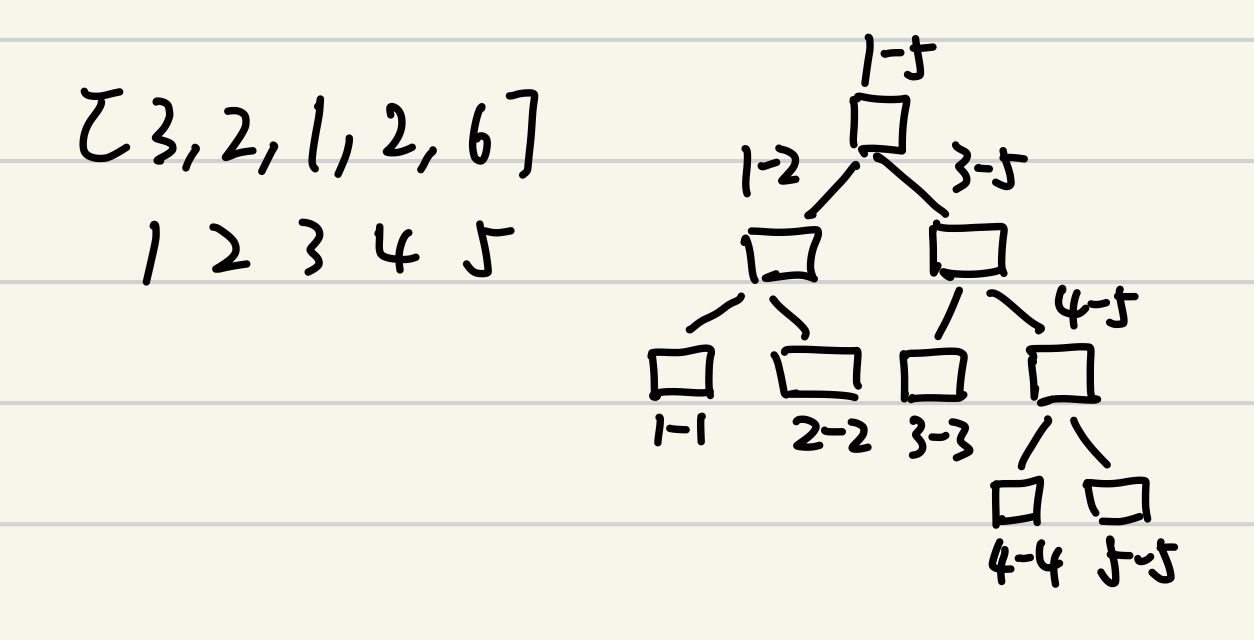 [3, 2, 1, 2, 6]
1 2 3 4 5
1-5
1-2
3-5
4-5
1-1
2-2
3-3
4-4
5-5